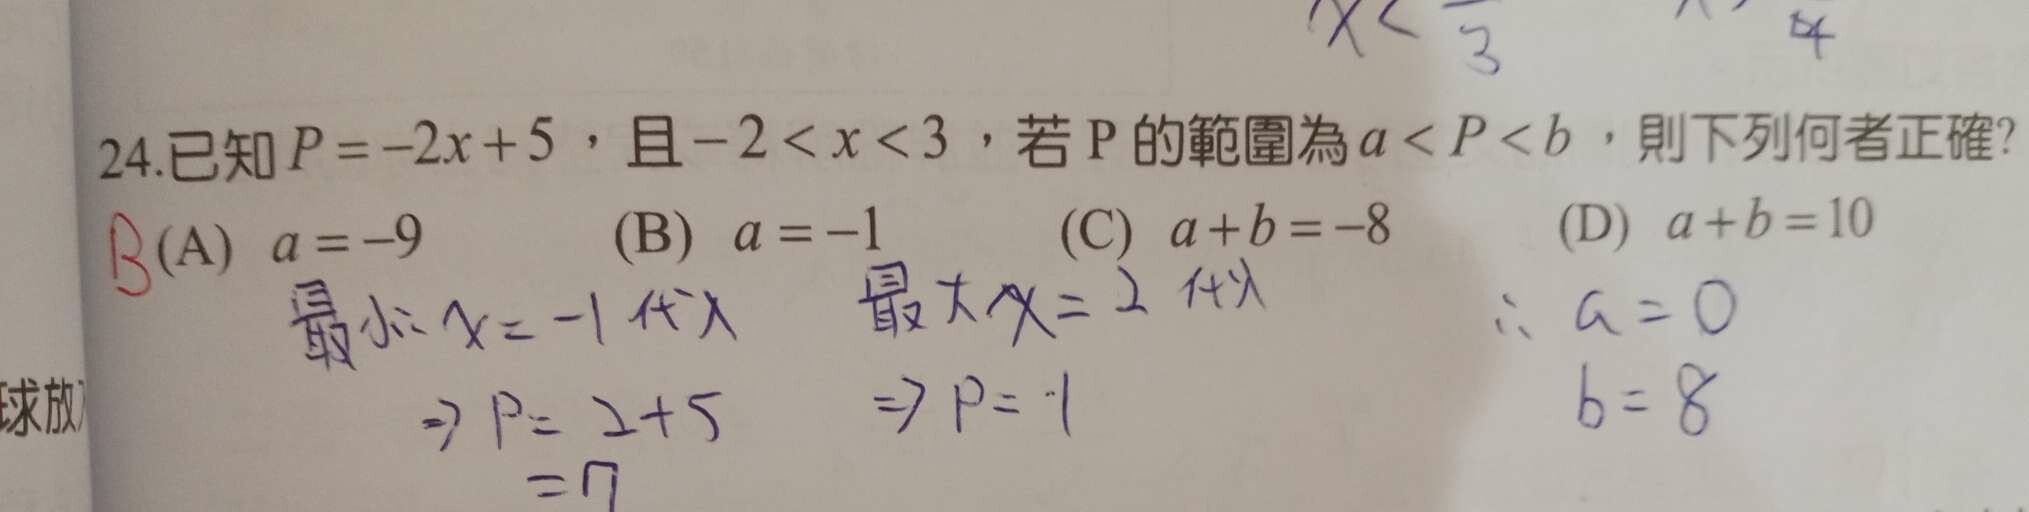 x < 3 4
24.已知 P = −2x + 5，且 − 2 < x < 3，若 P 的範圍為 a < P < b，則下列何者正確?
B (A) a = −9 (B) a = −1 (C) a + b = −8 (D) a + b = 10
最小: x = -1 代入 最大 x = 2 代入 ∴ a = 0
⇒ P = 2+5 ⇒ P = 1 b = 8
= 7
球放